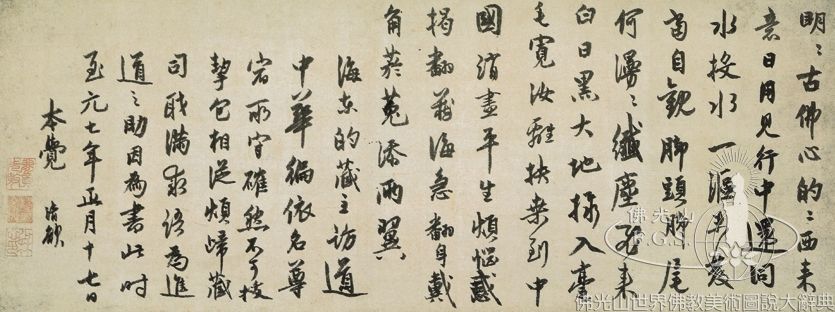 明〻古佛心的〻西来
意日用見行中還同
水投水一漚未發
當自觀脚頭脚尾
何漫〻纖塵不来
白日黑大地掇入毫
毛寬汝離扶桒到中
國消盡平生煩惱惑
揭翻蒼海急翻身戴
角菸菟添兩翼
海東的藏主訪道
中華徧依名尊
宿所守確然不可拔
挈包相從煩歸藏
司職滿求語為進
道之助因為書此時
至元七年正月十七日
本覺 清欲
佛光山
B.G.S.
佛光山世界佛教美術圖說大辭典